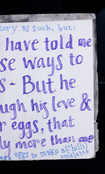 story of such, but:
I have told me
se ways to
s - But he
ough his love &
r eggs, that
ly more than one
eggs to make a